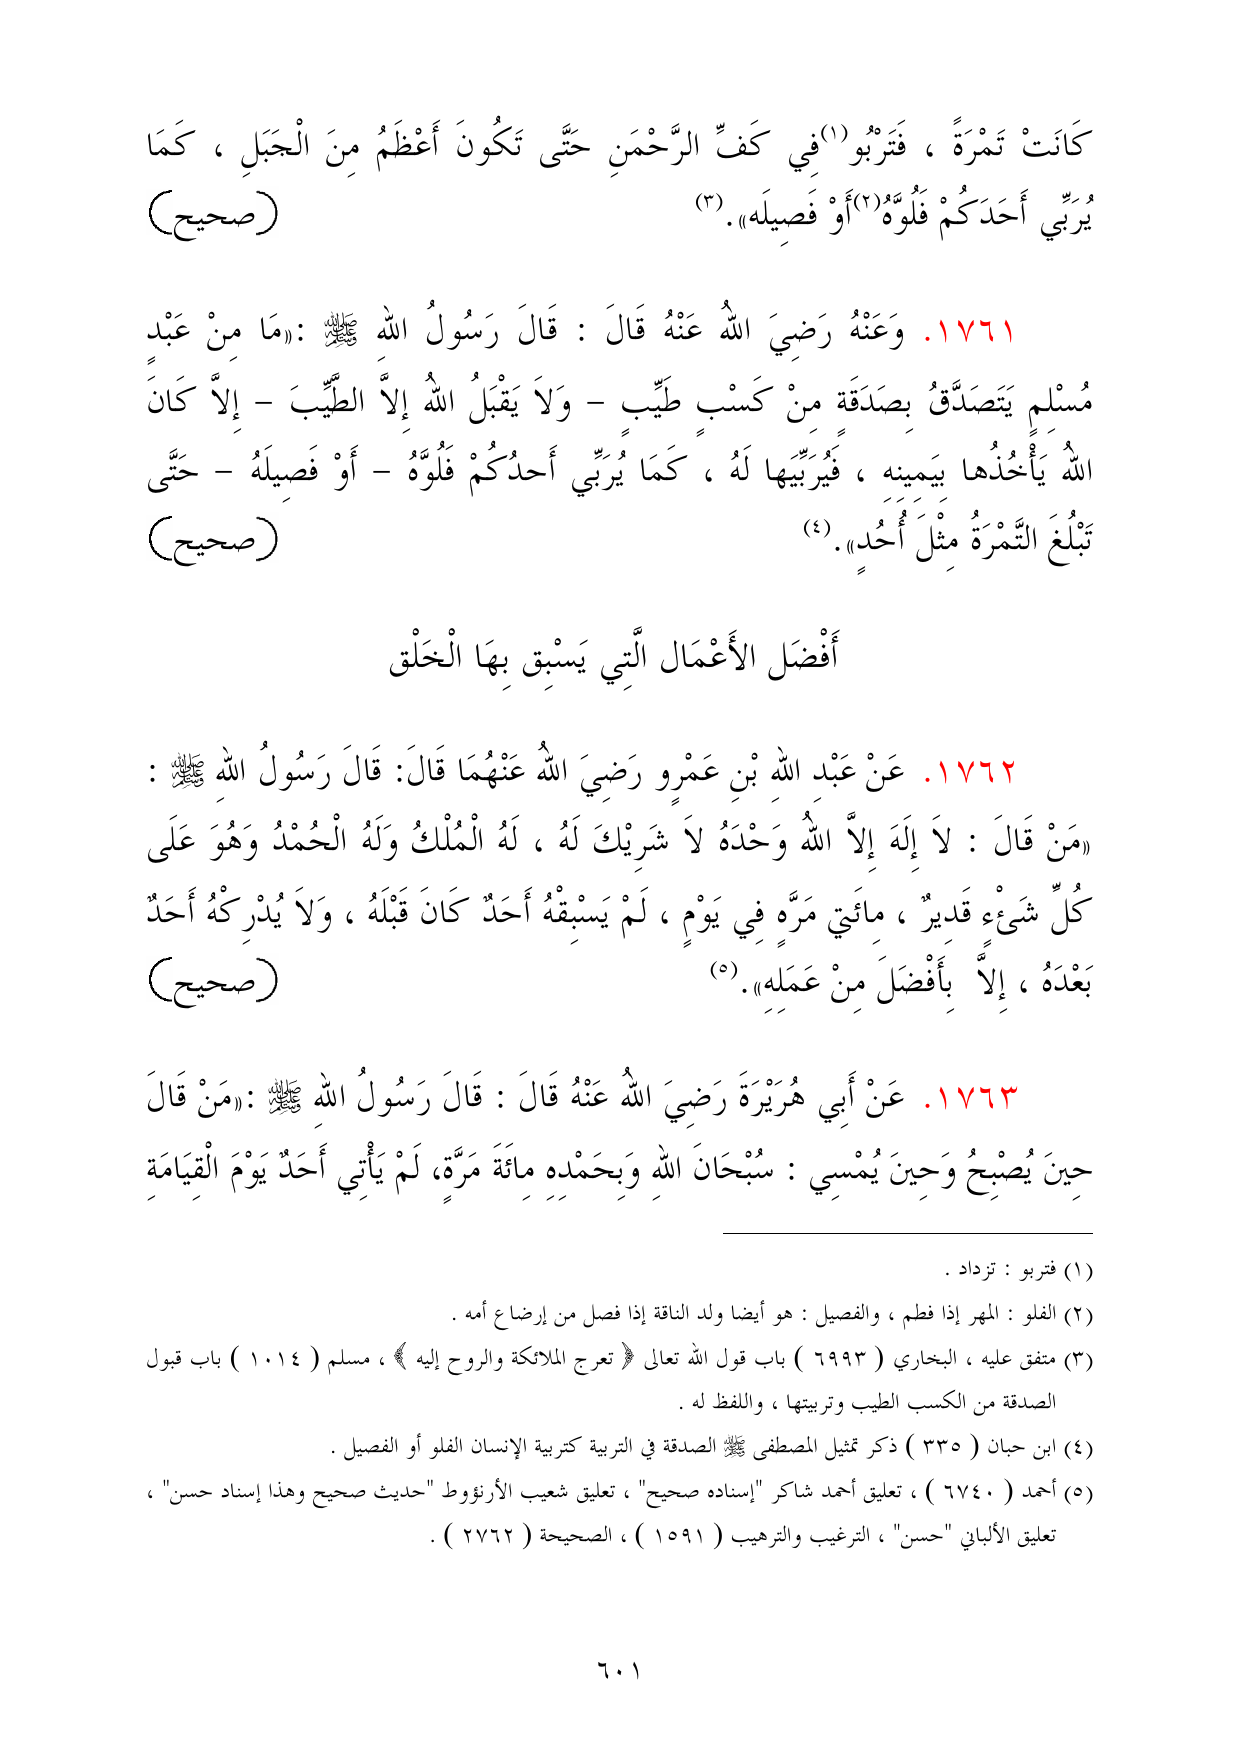 كَانَتْ تَمْرَةً ، فَتَرْبُو(١)فِي كَفِّ الرَّحْمَنِ حَتَّى تَكُونَ أَعْظَمُ مِنَ الْجَبَلِ ، كَمَا
يُرَبِّي أَحَدَكُمْ فَلُوَّهُ(٢)أَوْ فَصِيلَه».(٣) (صحيح)
١٧٦١. وَعَنْهُ رَضِيَ اللهُ عَنْهُ قَالَ : قَالَ رَسُولُ اللهِ ﷺ :«مَا مِنْ عَبْدٍ
مُسْلِمٍ يَتَصَدَّقُ بِصَدَقَةٍ مِنْ كَسْبٍ طَيِّبٍ – وَلاَ يَقْبَلُ اللهُ إِلاَّ الطَّيِّبَ – إِلاَّ كَانَ
اللهُ يَأْخُذُها بِيَمِينِهِ ، فَيُرَبِّيَها لَهُ ، كَمَا يُرَبِّي أَحدُكُمْ فَلُوَّهُ – أَوْ فَصِيلَهُ – حَتَّى
تَبْلُغَ التَّمْرَةُ مِثْلَ أُحُدٍ».(٤) (صحيح)
أَفْضَل الأَعْمَال الَّتِي يَسْبِق بِهَا الْخَلْق
١٧٦٢. عَنْ عَبْدِ اللهِ بْنِ عَمْرٍو رَضِيَ اللهُ عَنْهُمَا قَالَ: قَالَ رَسُولُ اللهِ ﷺ :
«مَنْ قَالَ : لاَ إِلَهَ إِلاَّ اللهُ وَحْدَهُ لاَ شَرِيْكَ لَهُ ، لَهُ الْمُلْكُ وَلَهُ الْحُمْدُ وَهُوَ عَلَى
كُلِّ شَىْءٍ قَدِيرٌ ، مِائَتي مَرَّهٍ فِي يَوْمٍ ، لَمْ يَسْبِقْهُ أَحَدٌ كَانَ قَبْلَهُ ، وَلاَ يُدْرِكْهُ أَحَدٌ
بَعْدَهُ ، إِلاَّ بِأَفْضَلَ مِنْ عَمَلِهِ».(٥) (صحيح)
١٧٦٣. عَنْ أَبِي هُرَيْرَةَ رَضِيَ اللهُ عَنْهُ قَالَ : قَالَ رَسُولُ اللهِ ﷺ :«مَنْ قَالَ
حِينَ يُصْبِحُ وَحِينَ يُمْسِي : سُبْحَانَ اللهِ وَبِحَمْدِهِ مِائَةَ مَرَّةٍ، لَمْ يَأْتِي أَحَدٌ يَوْمَ الْقِيَامَةِ
(١) فتربو : تزداد .
(٢) الفلو : المهر إذا فطم ، والفصيل : هو أيضا ولد الناقة إذا فصل من إرضاع أمه .
(٣) متفق عليه ، البخاري ( ٦٩٩٣ ) باب قول الله تعالى ﴿ تعرج الملائكة والروح إليه ﴾ ، مسلم ( ١٠١٤ ) باب قبول
الصدقة من الكسب الطيب وتربيتها ، واللفظ له .
(٤) ابن حبان ( ٣٣٥ ) ذكر تمثيل المصطفى ﷺ الصدقة في التربية كتربية الإنسان الفلو أو الفصيل .
(٥) أحمد ( ٦٧٤٠ ) ، تعليق أحمد شاكر "إسناده صحيح" ، تعليق شعيب الأرنؤوط "حديث صحيح وهذا إسناد حسن" ،
تعليق الألباني "حسن" ، الترغيب والترهيب ( ١٥٩١ ) ، الصحيحة ( ٢٧٦٢ ) .
٦٠١